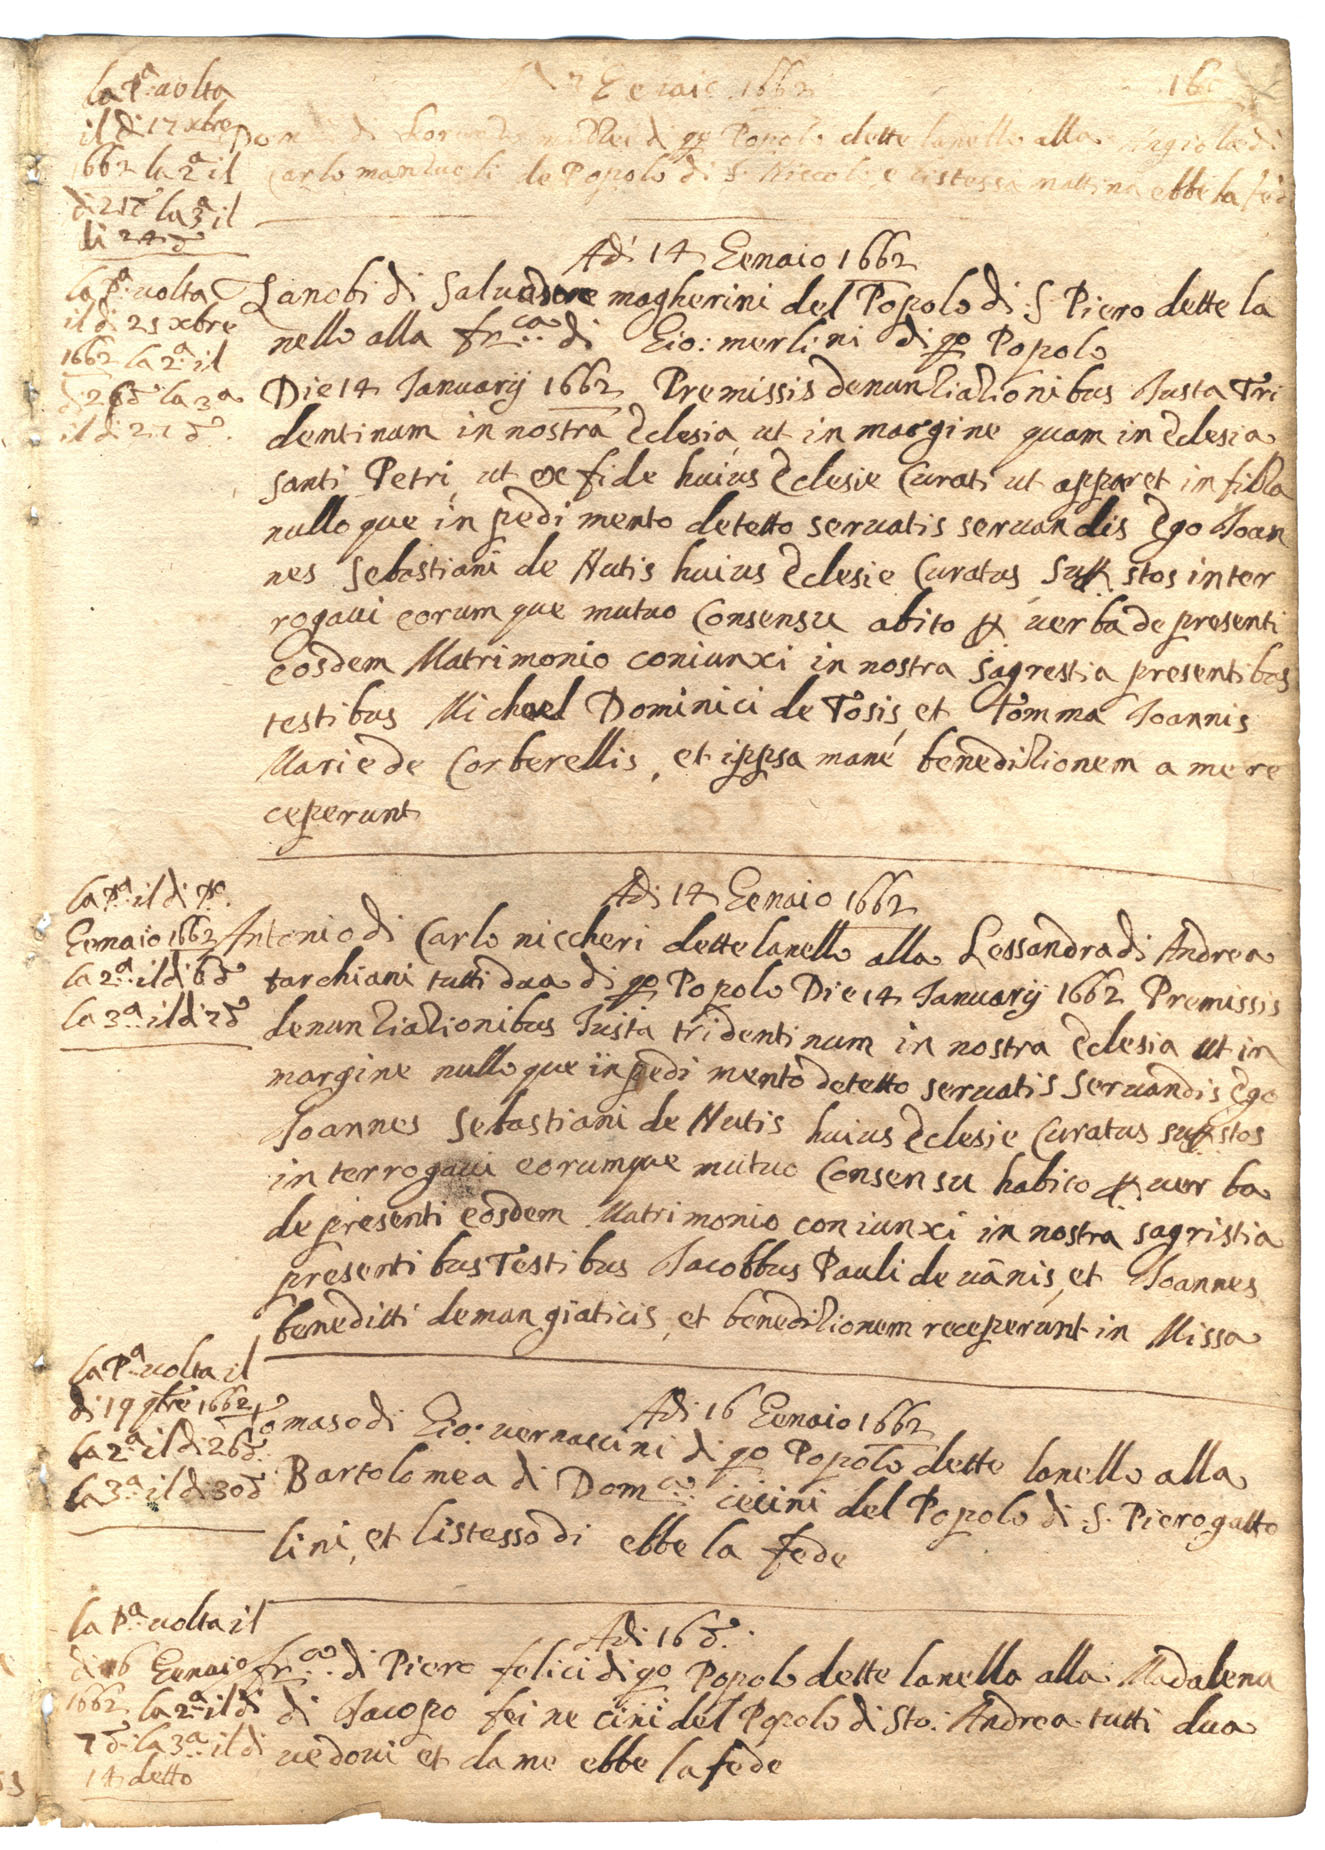 Gennaio 1662
la Pª volta
il di 17 xbre
1662 la 2ª il
di 21 d la 3ª il
di 24 d
di qo Popolo dette lanello alla
Carlo del Popolo di S. Niccolo e listessa mattina ebbe la fede
Adi 14 Gennaio 1662
la Pª volta
il di 21 xbre
1662 la 2ª il
di 26 d la 3ª
il di
Zanobi di Salvadore magherini del Popolo di S Piero dette la
nello alla frca di Gio: merlini di qo Popolo
Die 14 Januarij 1662 Premissis denunziazionibus Iusta Tri
dentinum in nostra Eclesia, ut in margine quam in Eclesia
santi Petri, ut ex fide huius Eclesie Curati ut apparet in filza
nulloque inpedimento detetto servatis servandis Ego Joan
nes Sebastiani de Nutis huius Eclesie Curatus supstos inter
rogavi eorumque mutuo Consensu abito p verba de presenti
eosdem Matrimonio coniunxi in nostra sagrestia presentibus
testibus Michael Dominici de Tosis, et Tomma Joannis
Marie de Corberellis, et ippsa mane benedizionem a me re
ceperunt
Adi 14 Gennaio 1662
la Pª il di Pº
Gennaio 1662
la 2ª il di 6 d
la 3ª il di 7 d
Antonio di Carlo niccheri dette lanello alla Lessandra di Andrea
tarchiani tutti dua di qo Popolo Die 14 Januarij 1662 Premissis
denunziazionibus Iusta tridentinum in nostra Eclesia ut in
margine nulloque inpedimento detetto servatis servandis Ego
Joannes Sebastiani de Nutis huius Eclesie Curatus supstos
interrogavi eorumque mutuo Consensu habito p verba
de presenti eosdem Matrimonio coniunxi in nostra sagristia
presentibus Testibus Jacobbus Pauli de vānis, et Joannes
beneditti de mangiaticis, et benedizionem receperunt in Missa
Adi 16 Gennaio 1662
la Pª volta il
di 19 9bre 1662
la 2ª il di 26 d
la 3ª il di 30 d
Tomaso di Gio: vernaccini di qo Popolo dette lanello alla
Bartolomea di Domco cicini del Popolo di S. Piero gatto
lini, et listesso di ebbe la fede
Adi 16 d.
la Pª volta il
di 6 Gennaio
1662 la 2ª il di
7 d la 3ª il di
14 detto
frco di Piero felici di qo Popolo dette lanello alla Madalena
di Jacopo feinecini del Popolo di Sto. Andrea tutti dua
vedovi et da me ebbe la fede